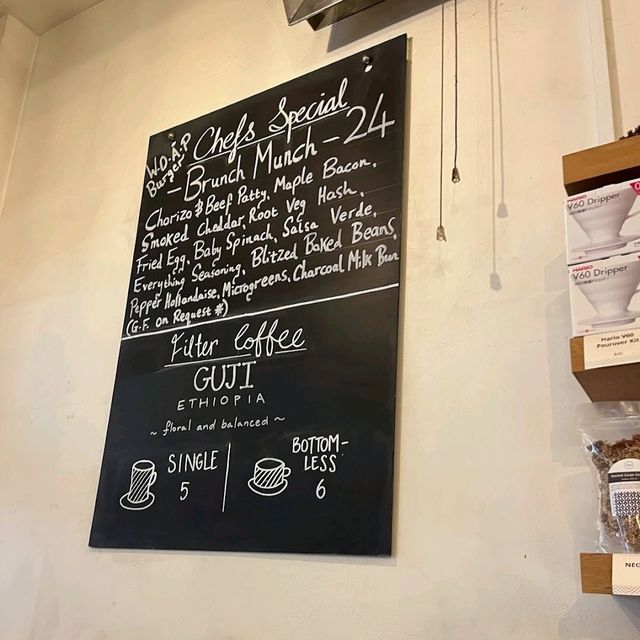 W.O.A.P
Burger
Chefs Special
- Brunch Munch - 24
Chorizo & Beef Patty, Maple Bacon,
Smoked Cheddar, Root Veg Hash,
Fried Egg, Baby Spinach, Salsa Verde,
Everything Seasoning, Blitzed Baked Beans,
Pepper Hollandaise, Microgreens, Charcoal Milk Bun
(G.F. on Request #)
Filter Coffee
GUJI
ETHIOPIA
~ floral and balanced ~
SINGLE
5
BOTTOM-
LESS
6
HARIO
V60 Dripper
HARIO
V60 Dripper
Hario V60
Pourover Kit